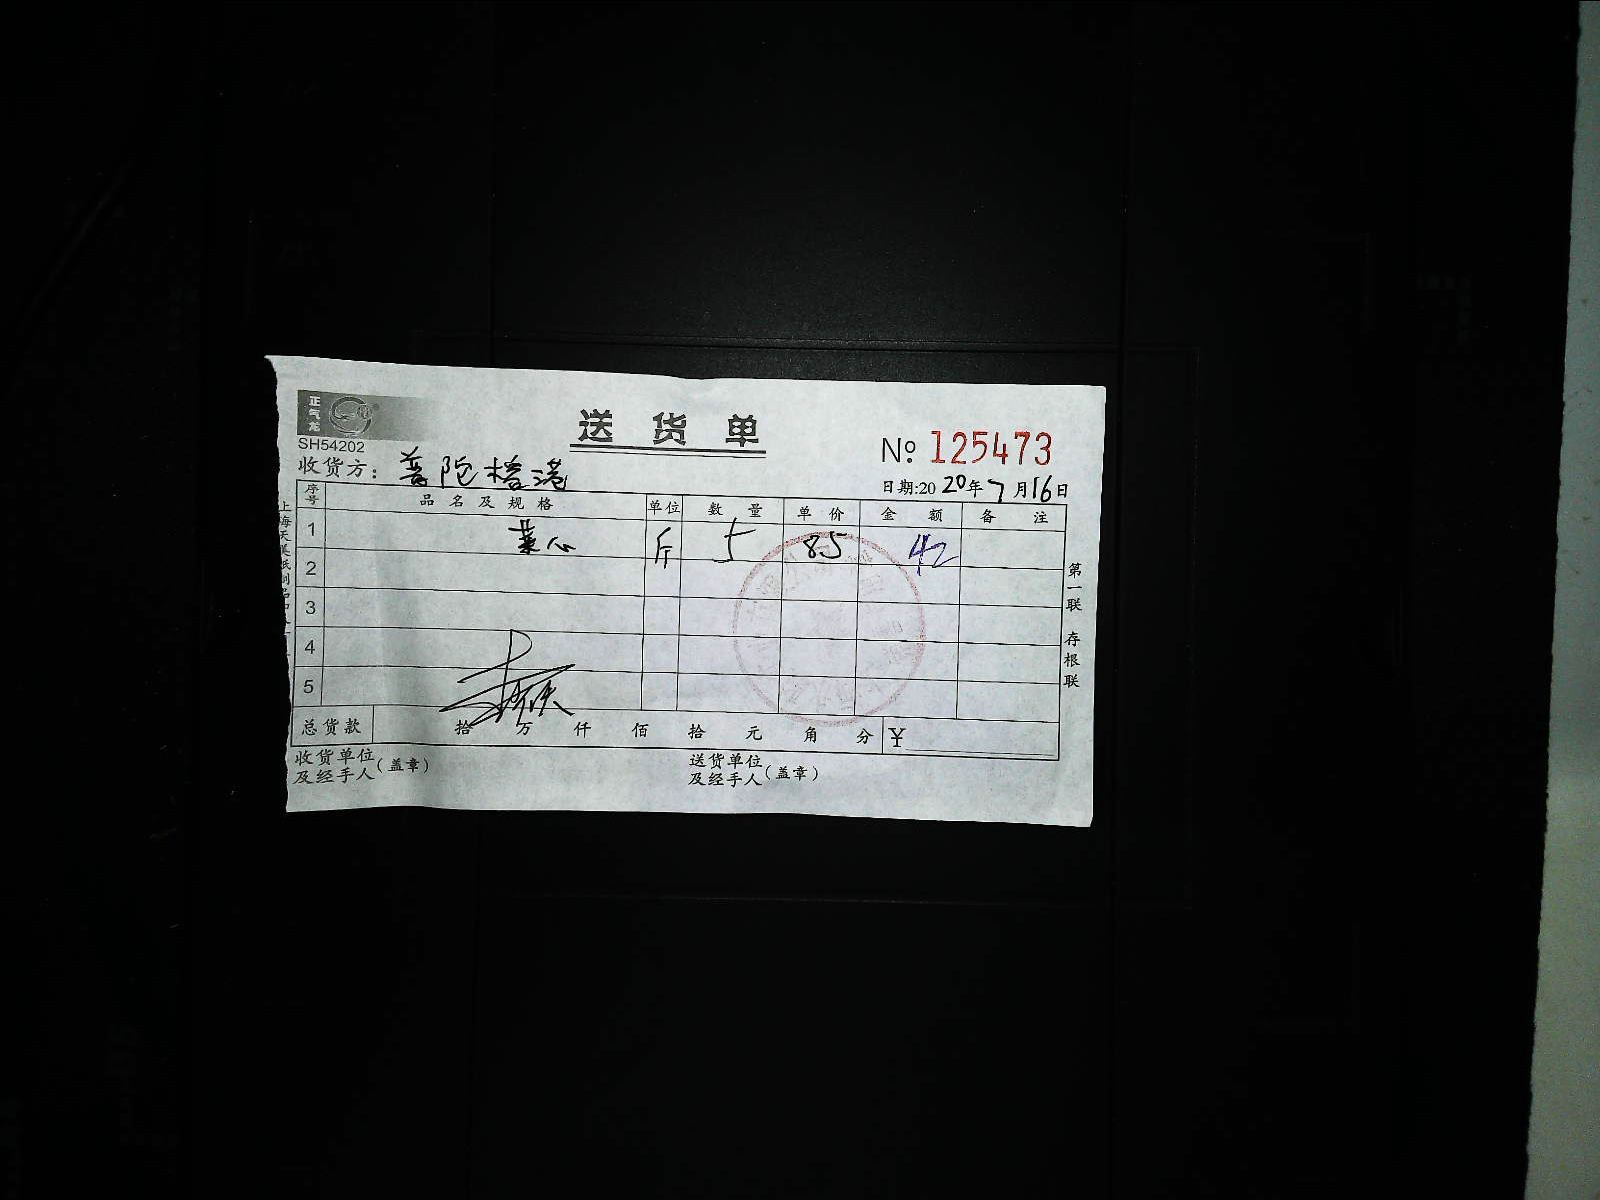 正气龙
SH54202
送货单
№ 125473
收货方：普陀榕港
日期:2020年7月16日
序号 品名及规格 单位 数量 单价 金额 备注
1 菜心 斤 5 85 42
2
3
4
5
总货款 拾 万 仟 佰 拾 元 角 分 ¥
收货单位及经手人（盖章）
送货单位及经手人（盖章）
第一联 存根联